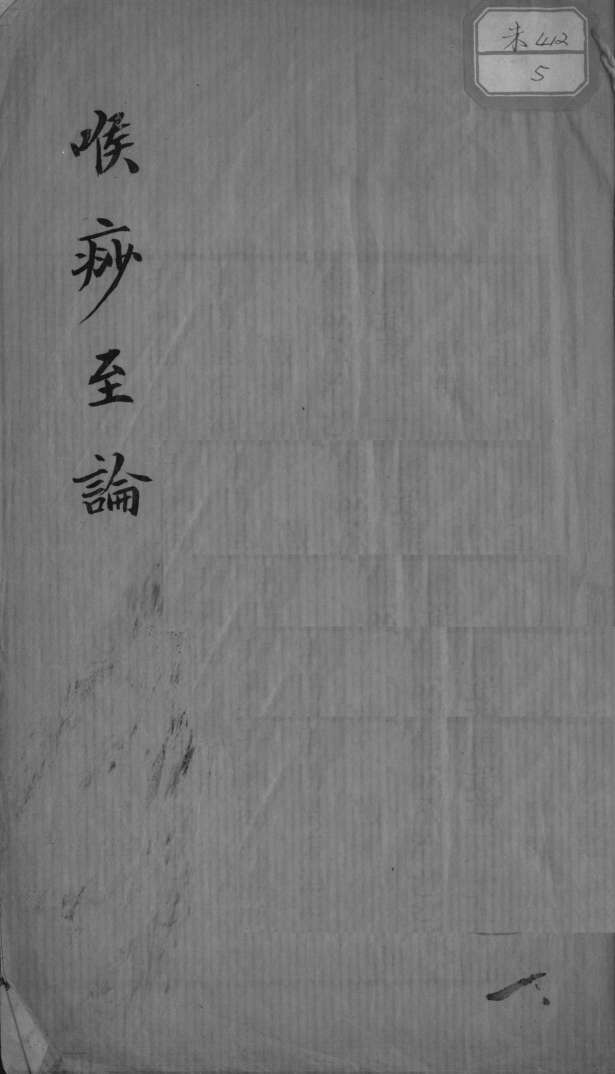 喉痧至論
朱412
5